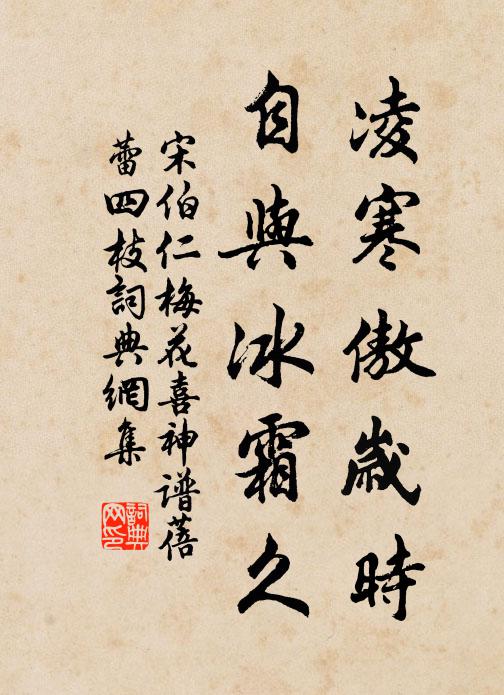 凌寒傲歲時
自與冰霜久
宋伯仁梅花喜神谱蓓
蕾四枝詞典網集
詞典
网印